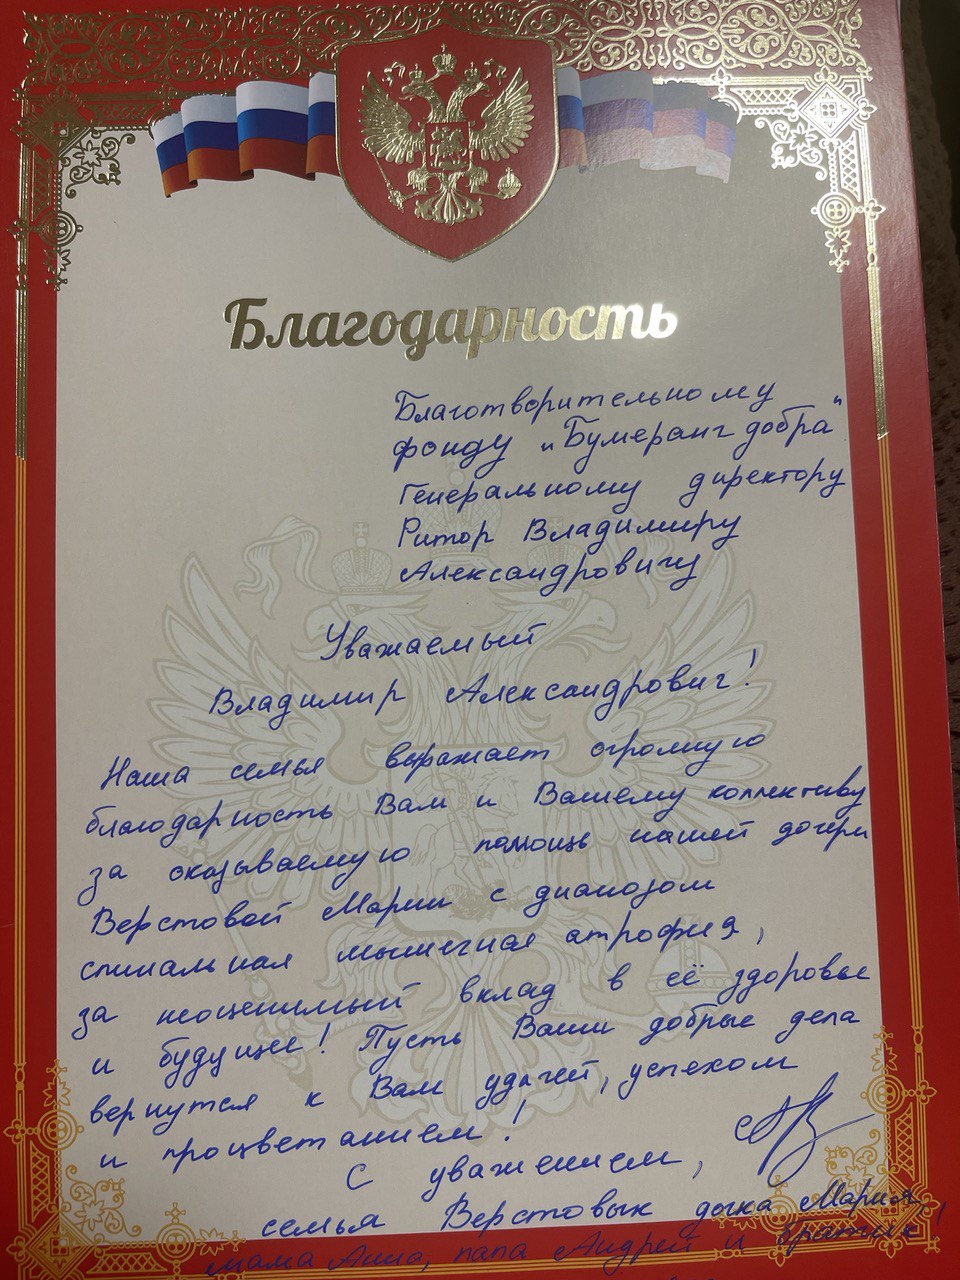 Благодарность
Благотворительному
фонду „Бумеранг добра"
Генеральному директору
Ритор Владимиру
Александровичу
Уважаемый
Владимир Александрович!
Наша семья выражает огромную
благодарность Вам и Вашему коллективу
за оказываемую помощь нашей дочери
Верстовой Марии с диагнозом
спинальная мышечная атрофия,
за неоценимый вклад в её здоровье
и будущее! Пусть Ваши добрые дела
вернутся к Вам удачей, успехом
и процветанием!
С уважением,
семья Верстовых дочка Мария,
мама Анна, папа Андрей и братик!